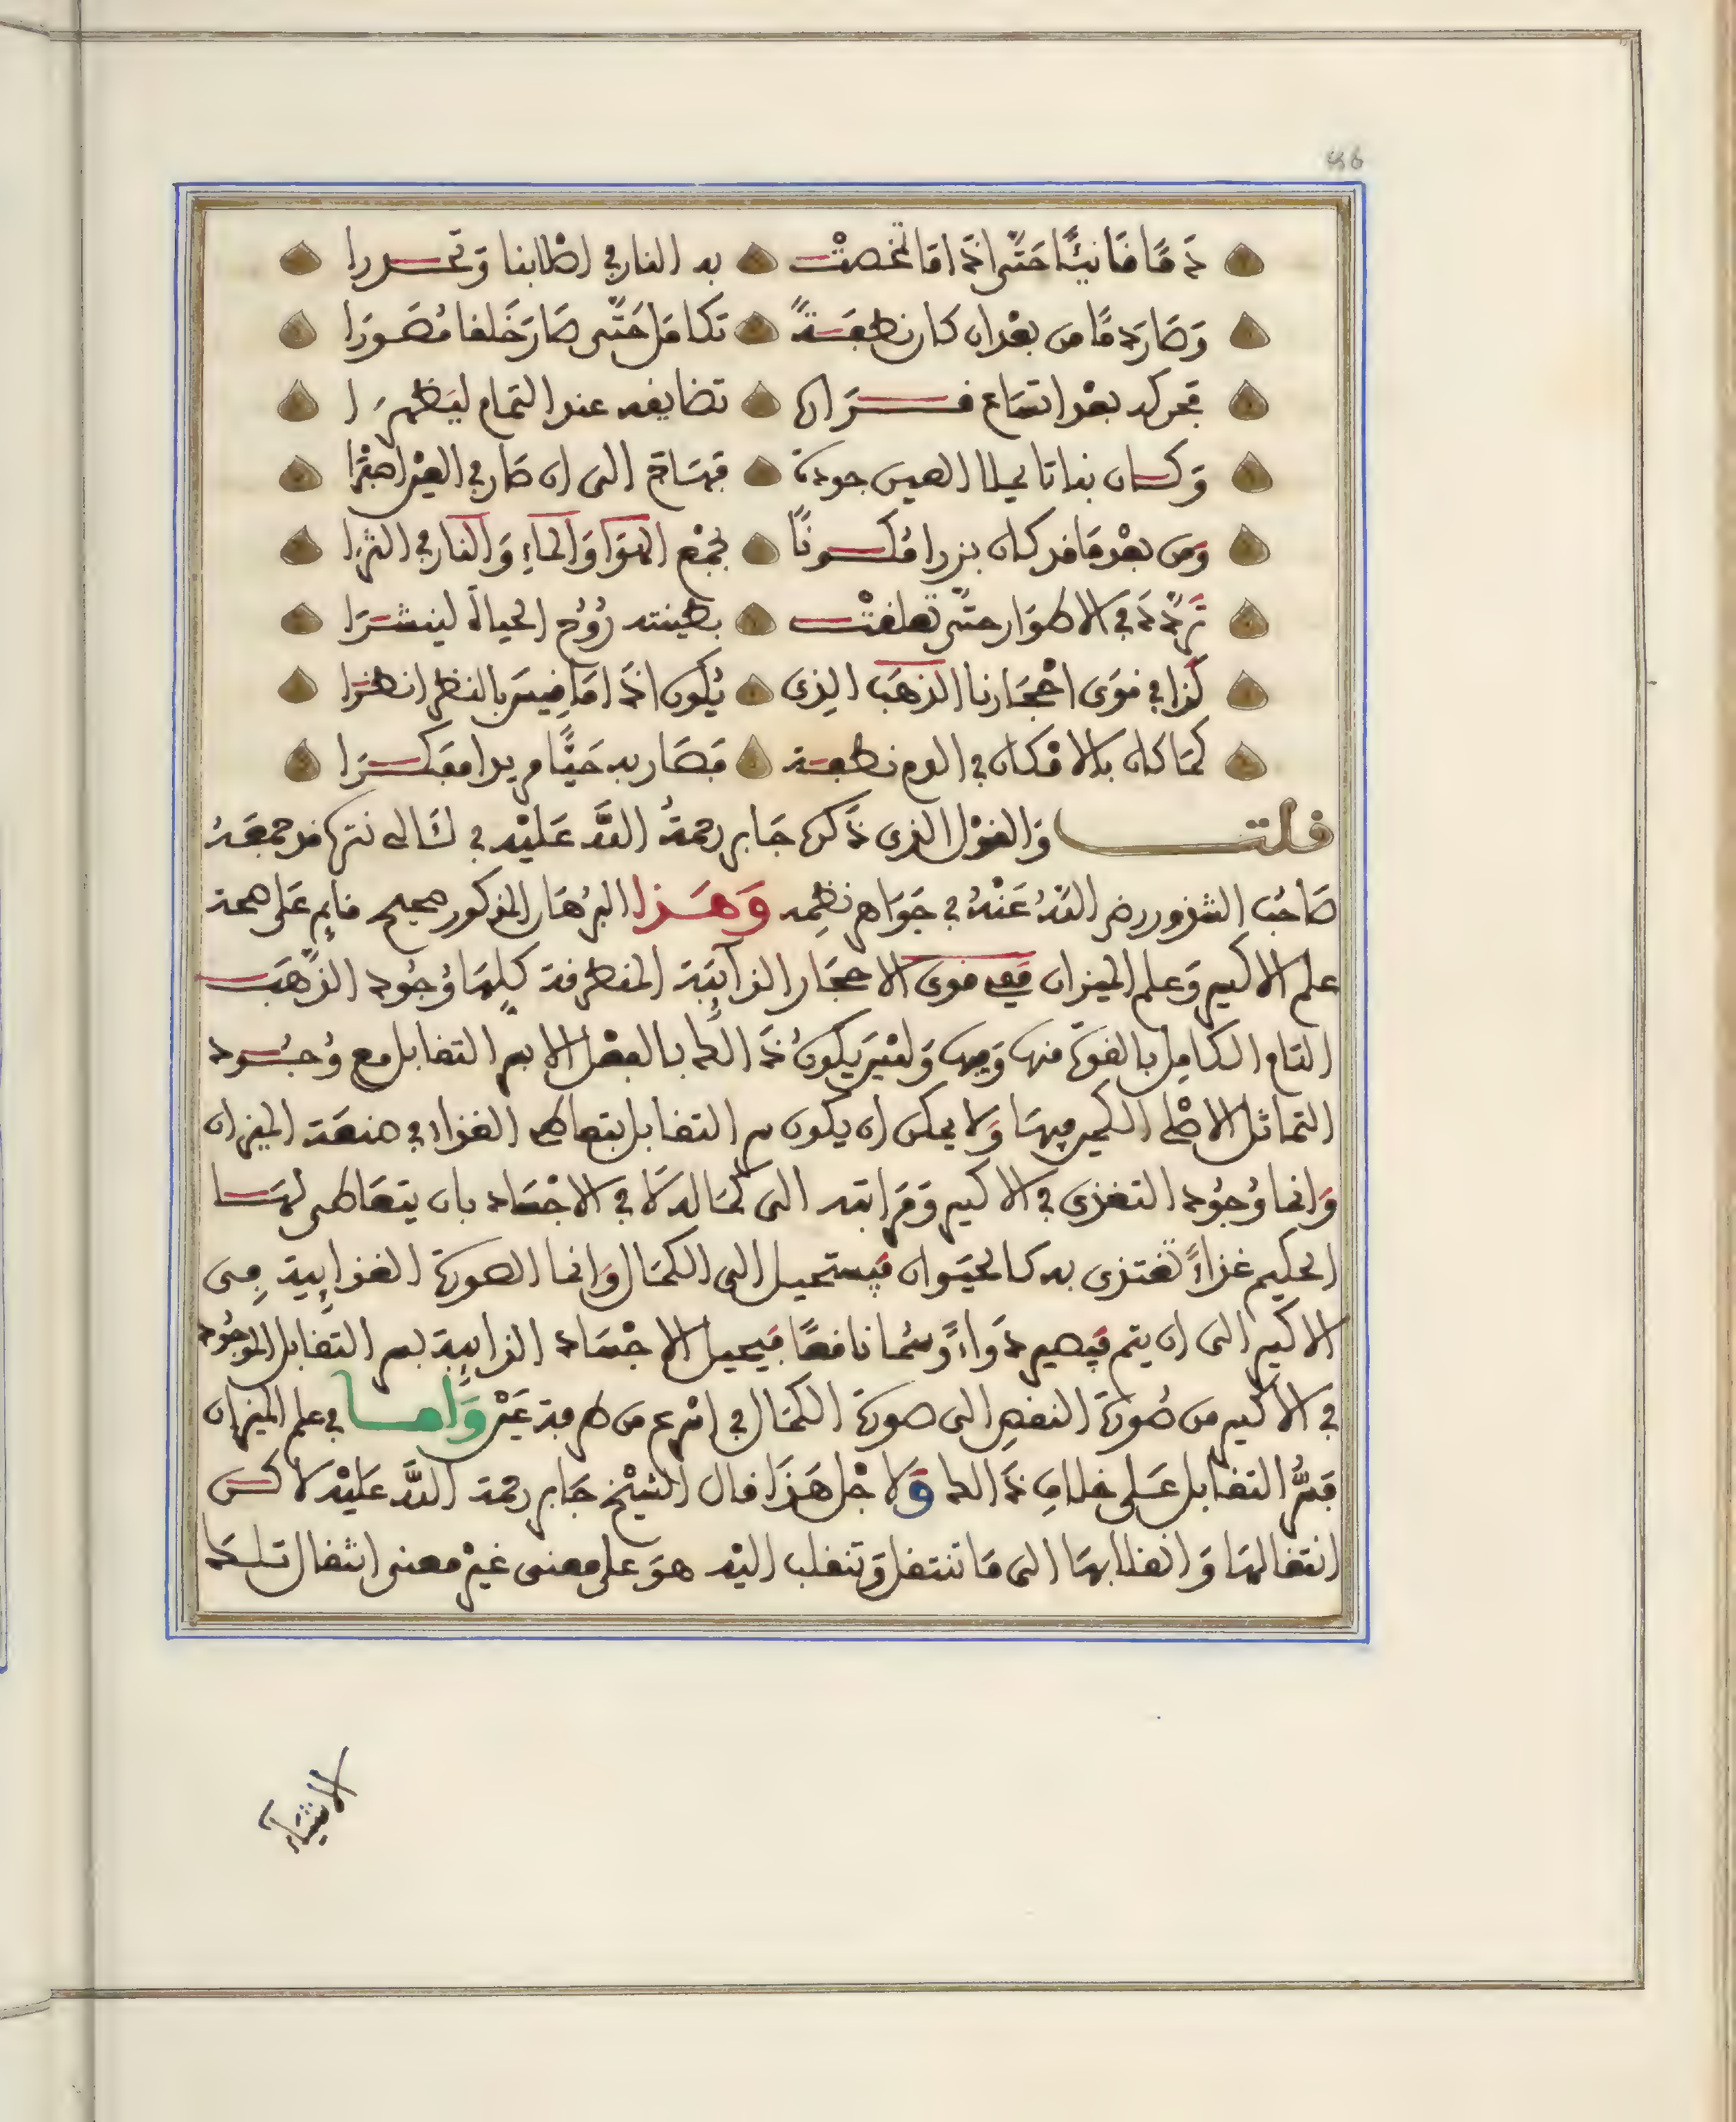 46
دَمًا قَانِيًا حَتَّى اذَا مَا تمخصتْ به النار في اصْلابنا وَتحـــدرا
وَصَارَ دمًا من بعْد ان كان نطفَةً تكامَل حَتَّى صَارَ خَلقا مُصَورَا
تحركه بعْد اتساع قــرَاره تضايقه عند التمام ليَظهرَا
وَكــان نباتا يحيل العين جوده فسَاقه الى ان صَار في العيْن اصْفرا
وَمن بعْد مَا قد كان بزرا مُكَــونًا بجمْع الهوَا وَالماءِ وَالنار في الثرا
تَردَّدَ في الاطوَار حتَّى تعلقتْ بطينته رُوُح الحياة لينشـرَا
كَذا في قوَى احْجَارنا الذهَب الذى يُكون اذَا مَا قِيسَ بالنظر انظرَا
كمَا كان بالامْكان في الدم نطفــة فصَار به حَيًّا مريدا مفكــرَا
قلت وَالقوْل الذى ذَكره جَابر رحمةُ اللَّه عَليْه في التى نثرها قد جمعَهُ
صَاحُب الشذور رضى اللَّهُ عَنْهُ في جوَاهر نظمِه وَهَـذا البرهَان المذكور صحيح قايم عَلى صحة
علم الاكسير وَعلم الميزان ففى قوى الاحجَار الذايبَة المنطرقة كلهَا وُجُود الذَّهَب
التام الكامِل بالقوة منها وَفيها وَليْسَ يكونُ ذَالك بالفعْل الا بسر التقابل مع وُجُود
التماثل الاصْلى الكمى فيهَا وَلا يمكن ان يكون سر التقابل بتعاطى الغذاء في صنعَة الميزان
وَانما وُجُود التغذى في الاكسير وَمرَاتبه الى كمَاله لا في الاجْسَاد بان يتعَاطى لهـا
الحكيم غذاءً تغتذى به كالحيَوان فيستحيل الى الكمَال وَانما الصورة الغذايِية مِن
الاكسير الى ان يتم فيَصير دَواءً وَسُما نافعًا فيحيل الاجْسَاد الذايِبة بسر التقابل الموجُود
في الاكسير من صُورَة النقصِ الى صورة الكمَال في اسْرع من طرفة عَيْن وَامــا في علم الميزان
فسُّر التقابل عَـلى خلافِ ذَالك وَلاجْل هَذَا قال الشيْخ جَابر رحمة اللَّه عَليْه لاكــن
انتقالهَا وَانقلابهَا الى مَا تنتقل وَتنقلب اليْه هوَ على معنى غيْر معنى انتقال تلــك
الاشيَاء